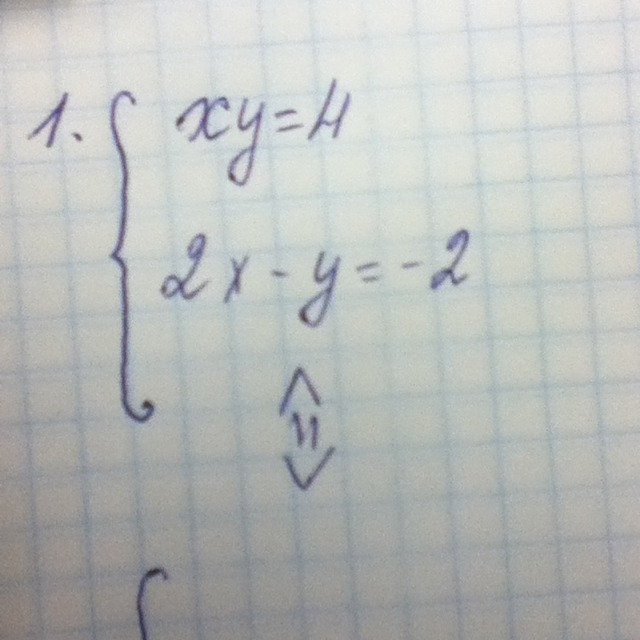 1. { xy = 4
2x - y = -2
⇕
{